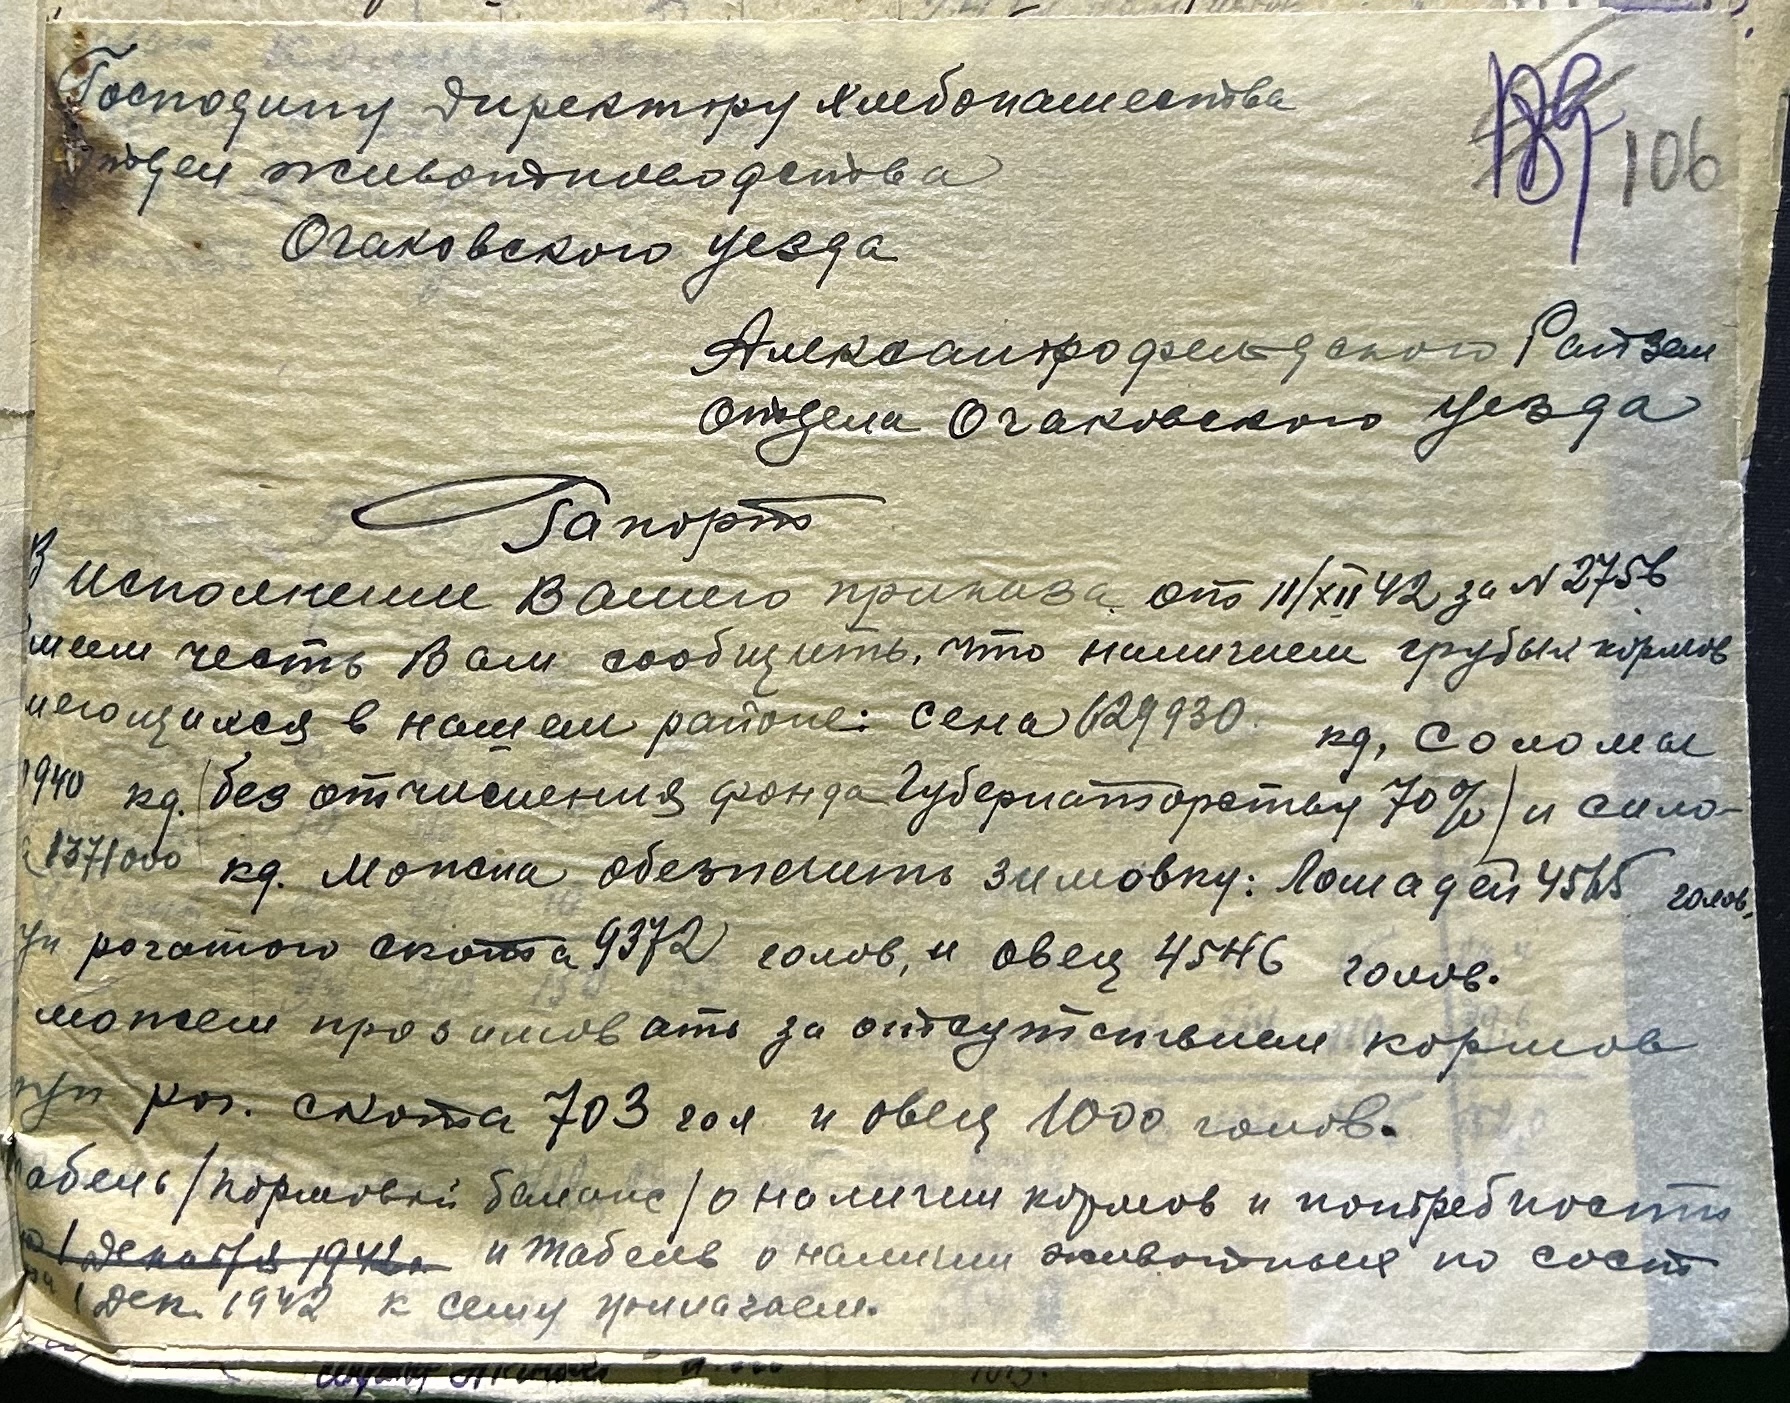 Господину директору хлебопашества
отдел животноводства
Очаковского уезда
189 106
Александрофельдского Райзем
отдела Очаковского уезда
Рапорт
В исполнении Вашего приказа от 11/XII 42 за N 2756
имеем честь Вам сообщить, что наличием грубых кормов
меющихся в нашем районе: сена 629930 кг, соломы
940 кг. (без отчисления фонда Губернаторству 70%) и сило-
1371000 кг. можна обезпечить зимовку: Лошадей 4565 голов,
рогатого скота 9372 голов, и овец 4546 голов.
можем прозимовать за отсутствием кормов
круп рог. скота 703 гол и овец 1000 голов.
абель /кормовой баланс/ о наличии кормов и потребности
1 декабря 1942 г и табель о наличии животных по сост
на 1 дек. 1942 к сему прилагаем.